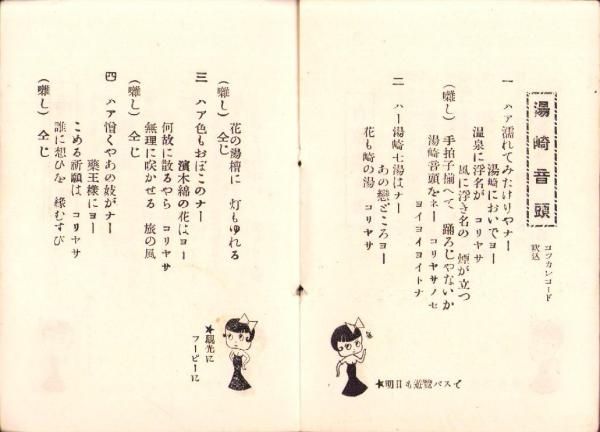 湯崎音頭
コツカレコード
吹込
一 ハア濡れてみたけりやナー
湯崎においでョー
温泉に浮名が コリヤサ
風に浮き名の 煙が立つ
(囃し) 手拍子揃べて 踊ろじやないか
湯崎音頭をネー コリヤサノセ
ヨイヨイヨイトナ
二 ハー湯崎七湯はナー
あの戀どころョー
花も崎の湯 コリヤサ
花の湯槽に 灯もゆれる
(囃し) 仝じ
三 ハア色もおぼこのナー
濱木綿の花はョー
何故に散るやら コリヤサ
無理に咲かせる 旅の風
(囃し) 仝じ
四 ハア憎くやあの妓がナー
藥王樣にョー
こめる祈願は コリヤサ
誰に想ひを 緣むすび
(囃し) 仝じ
★明日も遊覽バスで
★觀光に
フーピーに